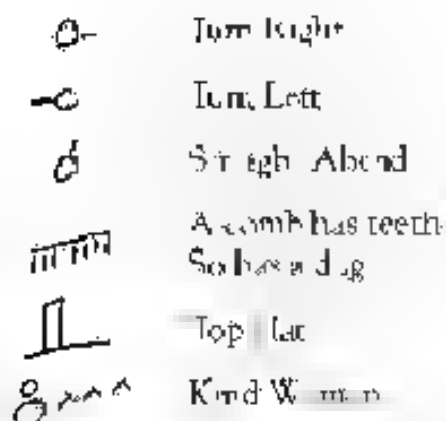 Turn Right
Turn Left
Straight Ahead
A comb has teeth
So has a dog
Top Hat
Kind Woman